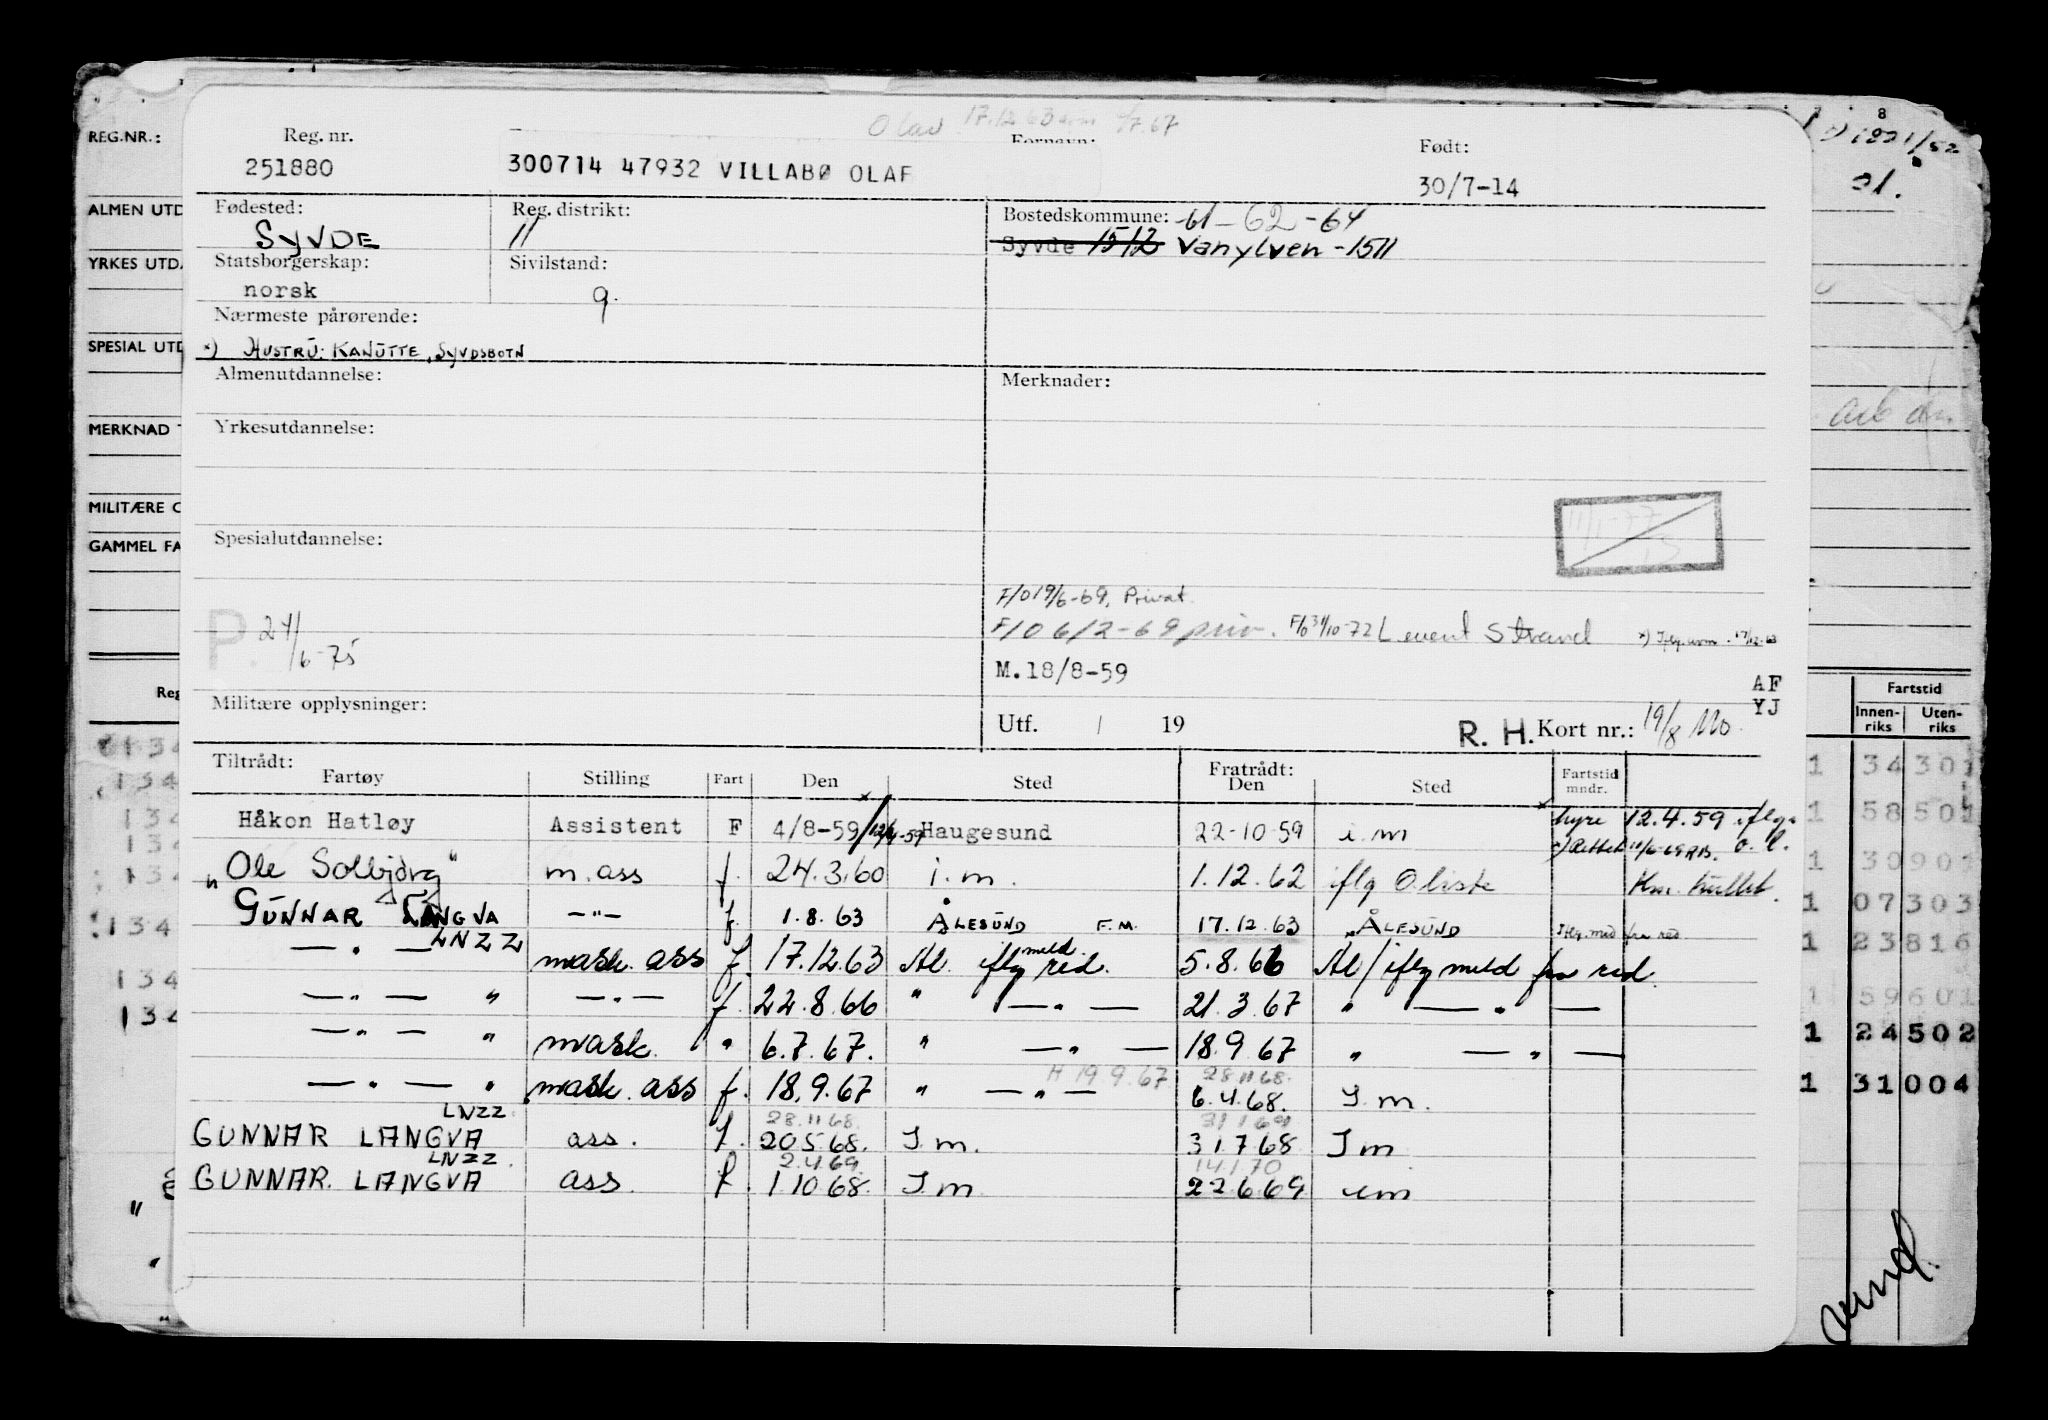 Olav 17.12.63
REG.NR.: Reg. nr. Fornavn: Født: 8
251880 300714 47932 VILLABØ OLAF 30/7-14 1821/52
ALMEN UTD Fødested: Reg. distrikt: Bostedskommune: -61-62-64
SYVDE 11 Syvde 1512 Vanylven-1511
YRKES UTD. Statsborgerskap: Sivilstand:
norsk g.
Nærmeste pårørende:
SPESIAL UTD *) HUSTRU: KANUTTE, SYVDSBOTN
Almenutdannelse: Merknader:
MERKNAD Yrkesutdannelse:
MILITÆRE 11/1-77
GAMMEL FA Spesialutdannelse:
F/O 19/6-69, Privat.
P. 24/6-75 F/O 6/2-69 priv. F/O 31/10-72 Levent Strand
M.18/8-59
AF
YJ
Militære opplysninger: Utf. / 19 R. H. Kort nr.: 19/8 Mo.
Reg Fartstid
Innenriks Utenriks
Tiltrådt: Fratrådt:
Fartøy Stilling Fart Den Sted Den Sted Fartstid mndr.
Håkon Hatløy Assistent F 4/8-59/12/4-59 Haugesund 22-10-59 i.m hyre 12.4.59 iflg. o.l.
"Ole Solbjørg" m. ass f. 24.3.60 i.m. 1.12.62 iflg O liste
GUNNAR LANGVA —"— f. 1.8.63 ÅLESUND F.M. 17.12.63 ÅLESUND
—"— LNZZ mask. ass f. 17.12.63 Ål. iflg meld red. 5.8.66 Ål/iflg meld fra red.
—"— " —"— f. 22.8.66 " —"— 21.3.67 " —"—
—"— " mask. " 6.7.67. " —"— 18.9.67 " —"—
—"— " mask. ass f. 18.9.67 " —"— H 19.9.67 28.11.68. 6.4.68. I.m.
GUNNAR LANGVA LNZZ ass. f. 28.11.68. 20.5.68. I.m. 31.1.69 31.7.68 I m
GUNNAR LANGVA LNZZ. ass. f. 2.4.69. 1.10.68. I.m 14.1.70 22.6.69 im
1 34301
1 58501
1 30901
1 07303
1 23816
1 59601
1 24502
1 31004